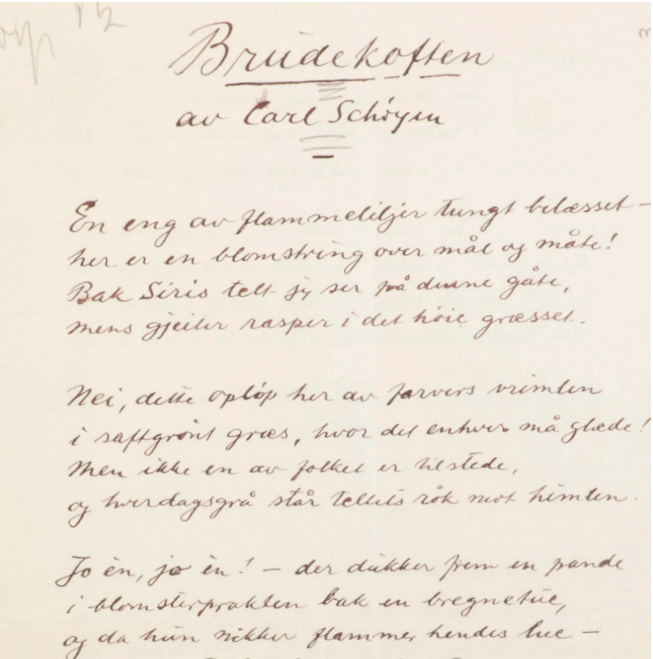 12
Brudekoften
av Carl Schöyen
En eng av flammeliljer tungt belæsset –
her er en blomstring over mål og måte!
Bak Siris telt jeg ser på denne gåte,
mens gjeiter rasper i det höie græsset.
Nei, dette opløp her av farvers vrimlen
i saftgrönt græs, hvor det enhver må glæde!
Men ikke en av folket er tilstede,
og hverdagsgrå står teltets rök mot himlen.
Jo èn, jo èn! – der dukker frem en pande
i blomsterprakten bak en bregnetue,
og da hun nikker flammer hendes hue –